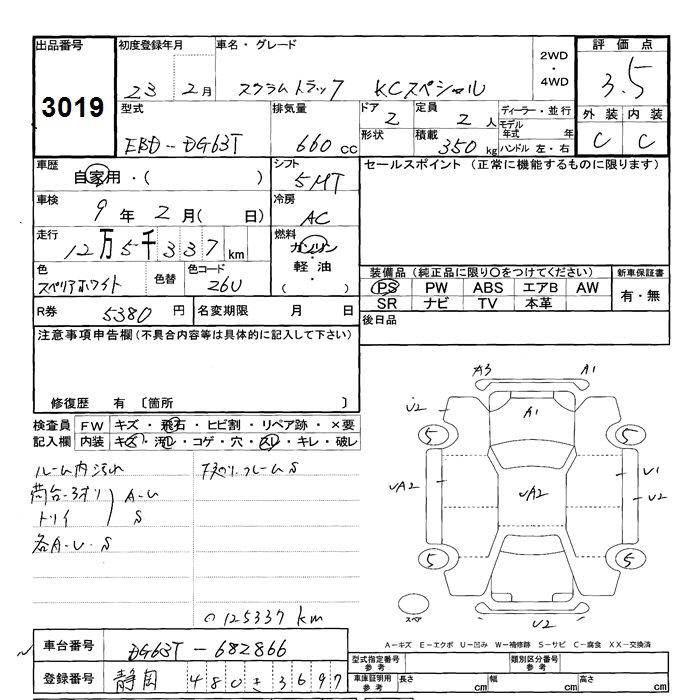 出品番号
3019
初度登録年月
23 2月
車名・グレード
スクラムトラック KCスペシャル
2WD
・
4WD
評価点
3.5
型式
EBD-DG63T
排気量
660 cc
ドア
2
形状
定員
2 人
積載
350 kg
ディーラー・並行
モデル年式 年
ハンドル 左・右
外装 内装
C C
車歴
自家用・( )
シフト
5MT
車検
9年 2月( 日)
冷房
AC
走行
12万5千337km
燃料
ガソリン
・
軽油
( ・ )
色
スペリアホワイト
色替
色コード
26U
R券 5380 円
名変期限 月 日
セールスポイント(正常に機能するものに限ります)
装備品(純正品に限り○をつけてください)
PS PW ABS エアB AW
SR ナビ TV 本革
新車保証書
有・無
後日品
注意事項申告欄(不具合内容等は具体的に記入して下さい)
修復歴 有 〔箇所 〕
検査員記入欄
FW キズ・飛石・ヒビ割・リペア跡・×要
内装 キズ・汚レ・コゲ・穴・スレ・キレ・破レ
ルーム内汚れ
下廻り.フレームS
荷台・3オリ A-U
トリイ S
各A-U-S
0125337 km
A3 A1
U2 A1
5 5
UA2 UA2 U1
U2
5 5
スペア
U2
A-キズ E-エクボ U-凹み W-補修跡 S-サビ C-腐食 XX-交換済
車台番号 DG63T-682866
登録番号 静岡 480 き 3697
型式指定番号 参考
類別区分番号 参考
車庫証明用 参考
長さ cm 幅 cm 高さ cm